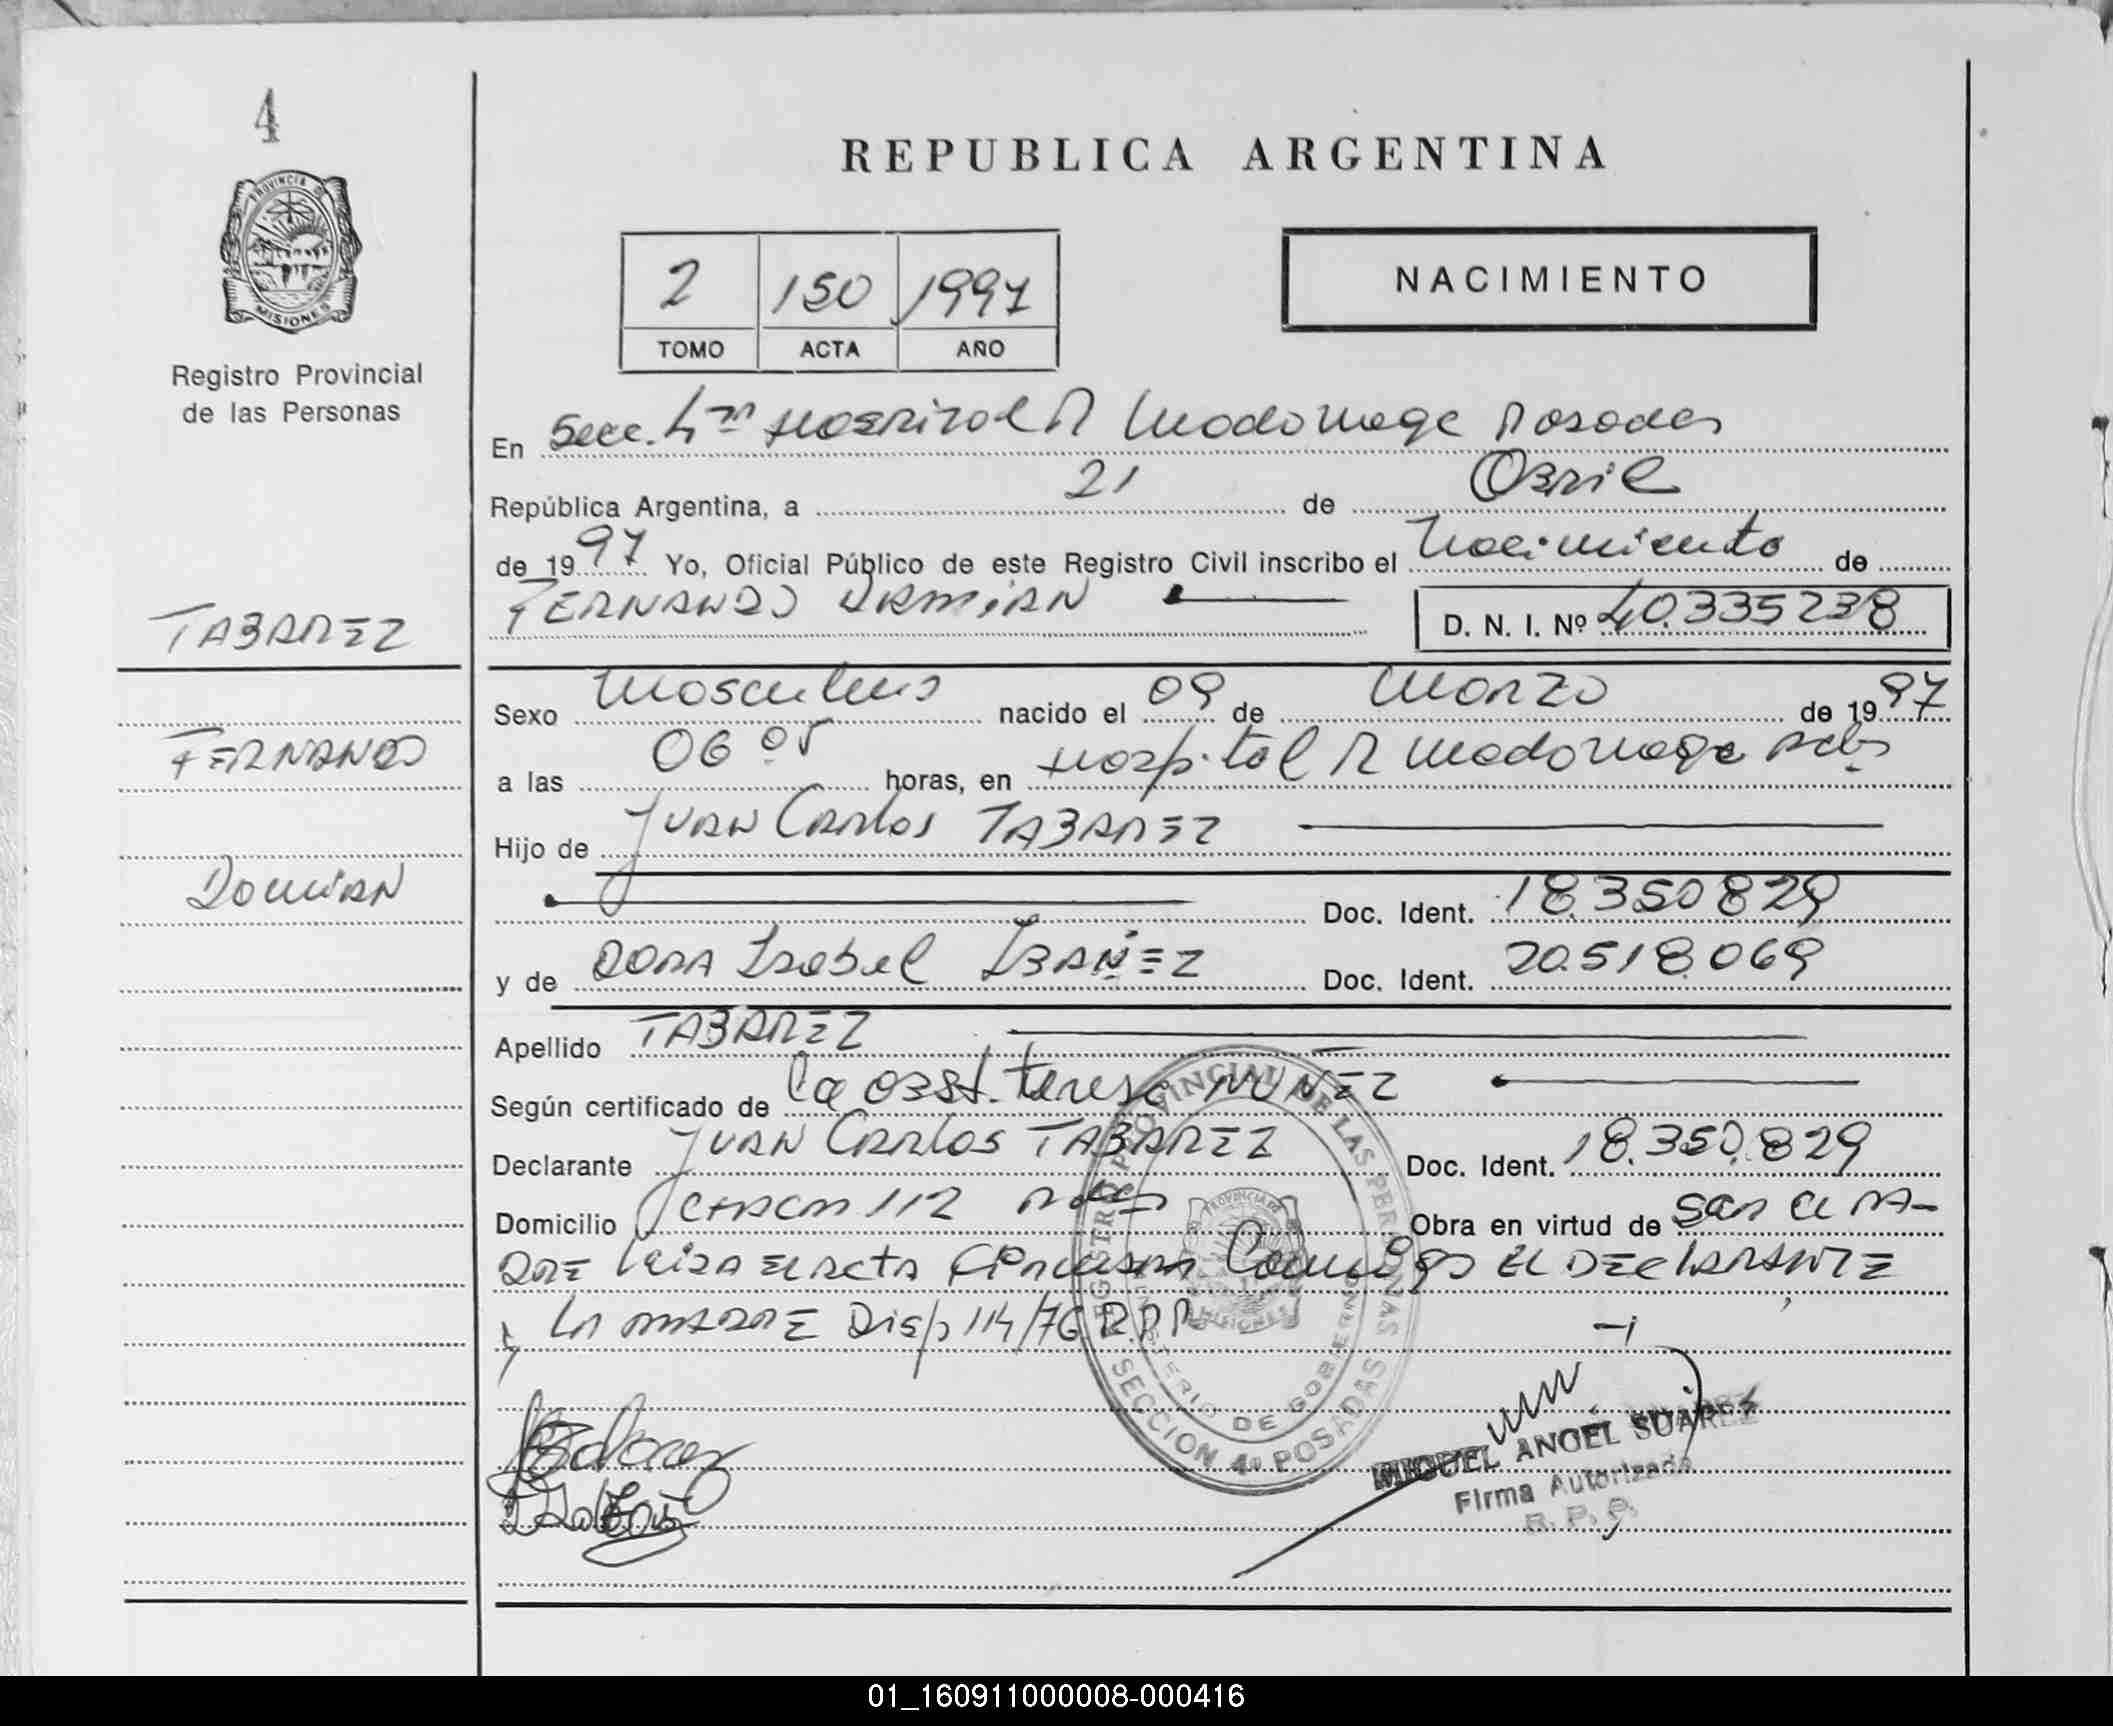 4
REPUBLICA ARGENTINA
PROVINCIA D
MISIONES
Registro Provincial
de las Personas
2 150 1997
TOMO ACTA AÑO
NACIMIENTO
En Secc. 4ta Hospital R Madariaga Posadas
República Argentina, a 21 de Abril
de 1997 Yo, Oficial Público de este Registro Civil inscribo el Nacimiento de
FERNANDO DAMIAN D. N. I. Nº 40.335238
TABAREZ
Sexo Masculino nacido el 09 de Marzo de 1997
FERNANDO
a las 06 05 horas, en Hospital R Madariaga Pdas
Hijo de Juan Carlos TABAREZ
DamiAN
Doc. Ident. 18.350829
y de DORA Isabel IBAÑEZ Doc. Ident. 20.518.069
Apellido TABAREZ
Según certificado de la obst. Teresa NUÑEZ
Declarante Juan Carlos TABAREZ Doc. Ident. 18.350.829
Domicilio CHACO 112 Pdas Obra en virtud de ser el PA-
DRE leida el acta conmigo EL DECLARANTE
y LA MADRE Disp 114/76 R.P.P.
REGISTRO PROVINCIAL DE LAS PERSONAS
MINISTERIO DE GOBIERNO
SECCION 4a POSADAS
MIGUEL ANGEL SUAREZ
Firma Autorizada
R. P. P.
01_160911000008-000416